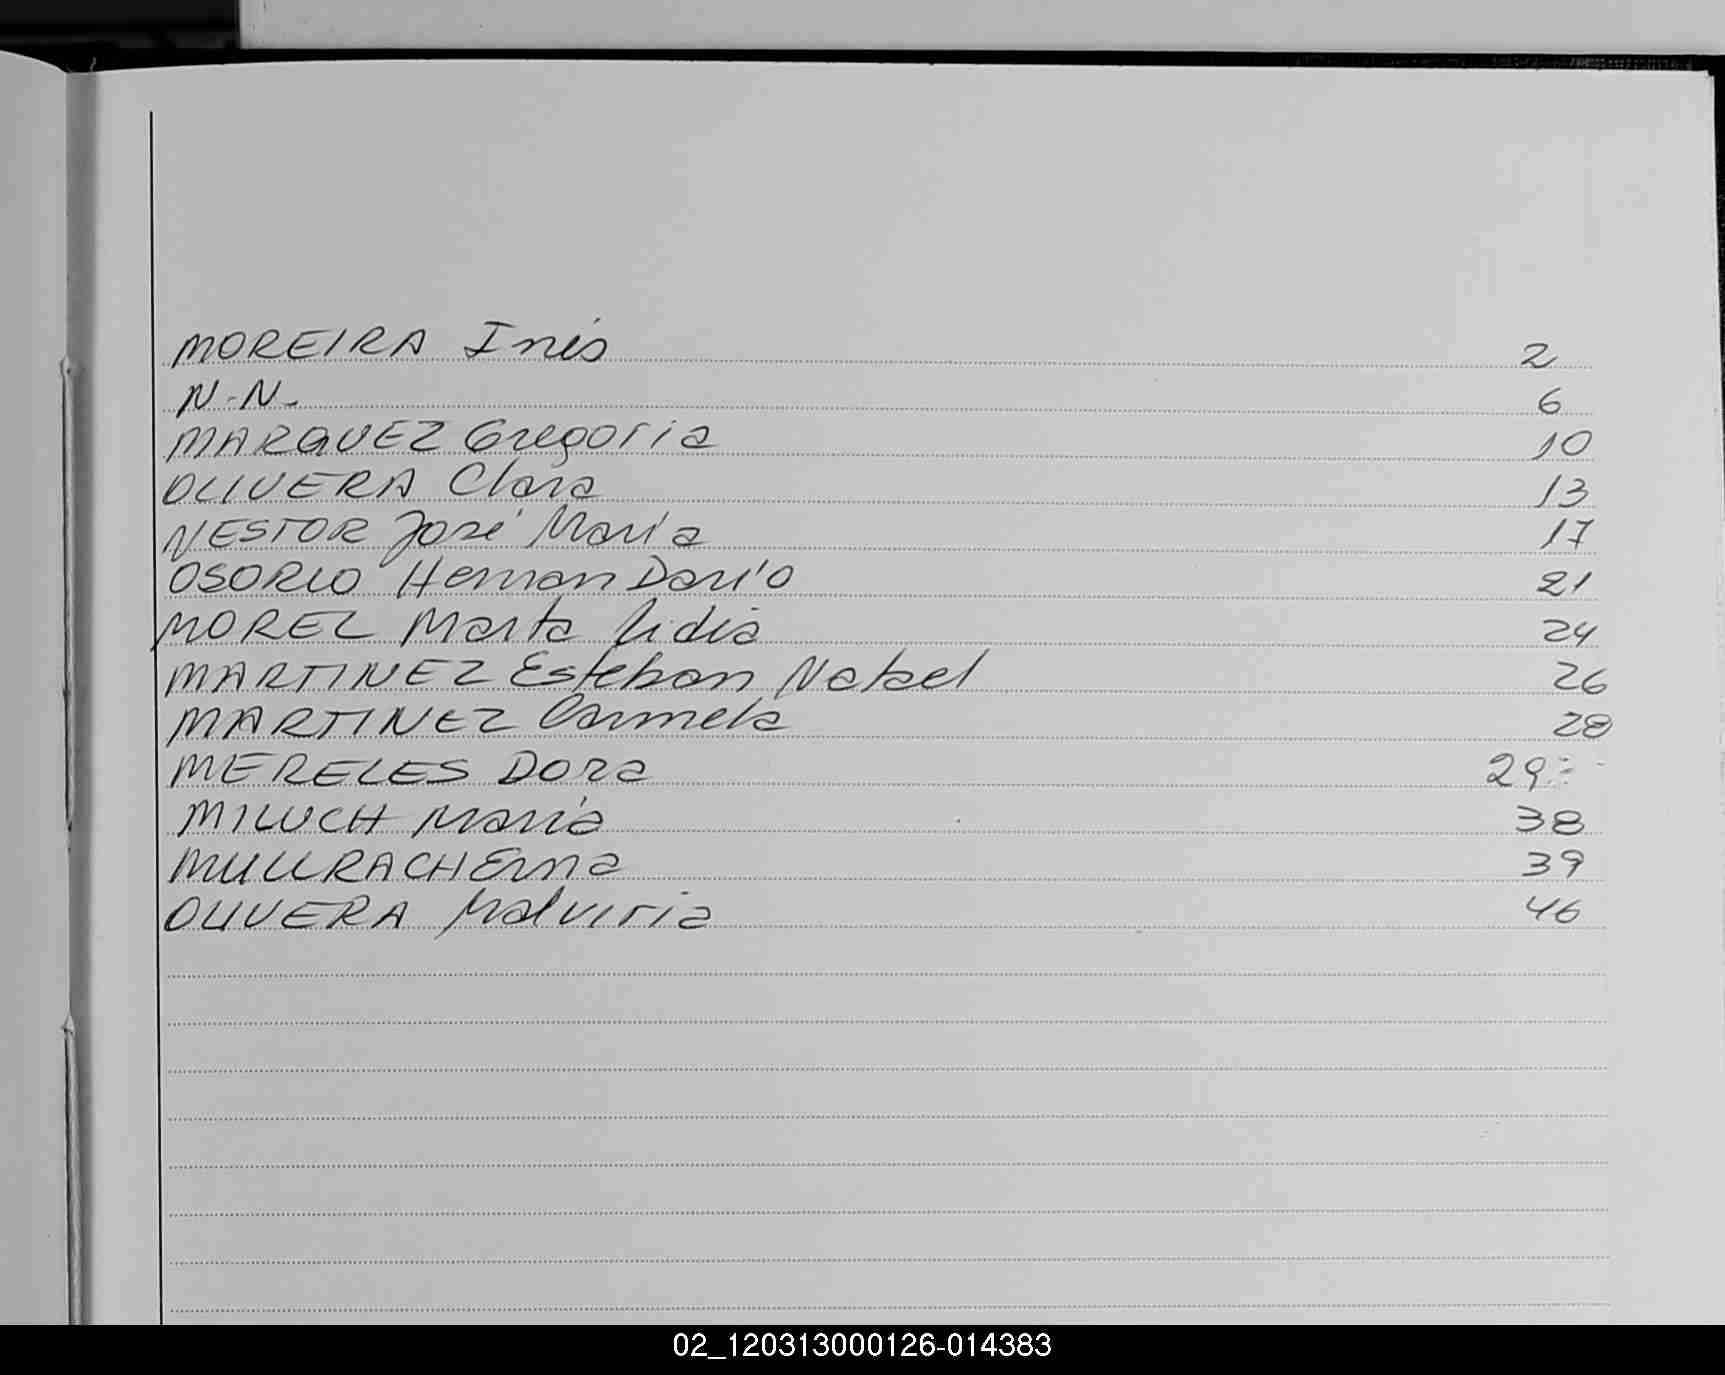 MOREIRA Inés 2
N.N. 6
MARQUEZ Gregoria 10
OLIVERA Clara 13
NESTOR José María 17
OSORIO Hernan Darío 21
MOREL Marta Lidia 24
MARTINEZ Esteban Natael 26
MARTINEZ Carmela 28
MERELES Dora 29
MILUCH María 38
MULLRACH Erna 39
OLIVERA Malviria 46
02_120313000126-014383